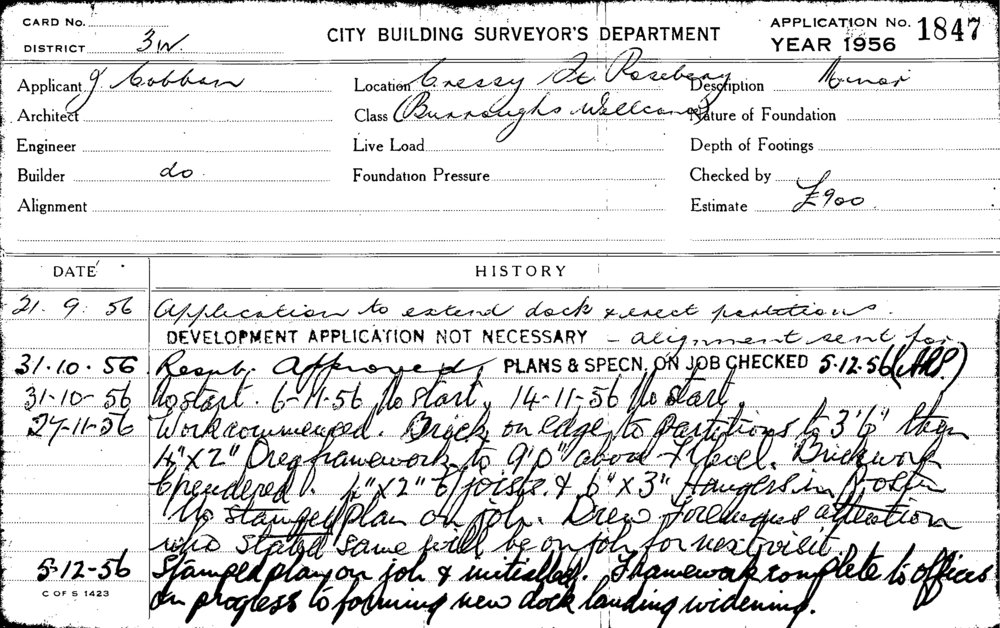 CARD No.
DISTRICT 3W.
CITY BUILDING SURVEYOR'S DEPARTMENT
APPLICATION No. 1847
YEAR 1956
Applicant J Cobban Location Cressy St. Rosebery Description Minor
Architect Class Burroughs Wellcome Nature of Foundation
Engineer Live Load Depth of Footings
Builder do. Foundation Pressure Checked by
Alignment Estimate £900
DATE HISTORY
21. 9. 56 Application to extend dock & erect partitions.
DEVELOPMENT APPLICATION NOT NECESSARY - alignment sent for
31.10.56 Resub. Approved. PLANS & SPECN. ON JOB CHECKED 5-12-56
31-10-56 No start. 6-11-56 No start. 14-11-56 No start.
27-11-56 Work commenced. Brick on edge to partitions to 3'6" then
4"x2" Oreg framework to 9'0" above level. Brickwork
rendered. joists & 6"x3" Hangers in
No stamped plan on job. Drew foremans attention
who stated same will be on job for next visit.
5-12-56 Stamped plan on job & initialled. Framework complete to offices
in progress to forming new dock landing widening.
C OF S 1423